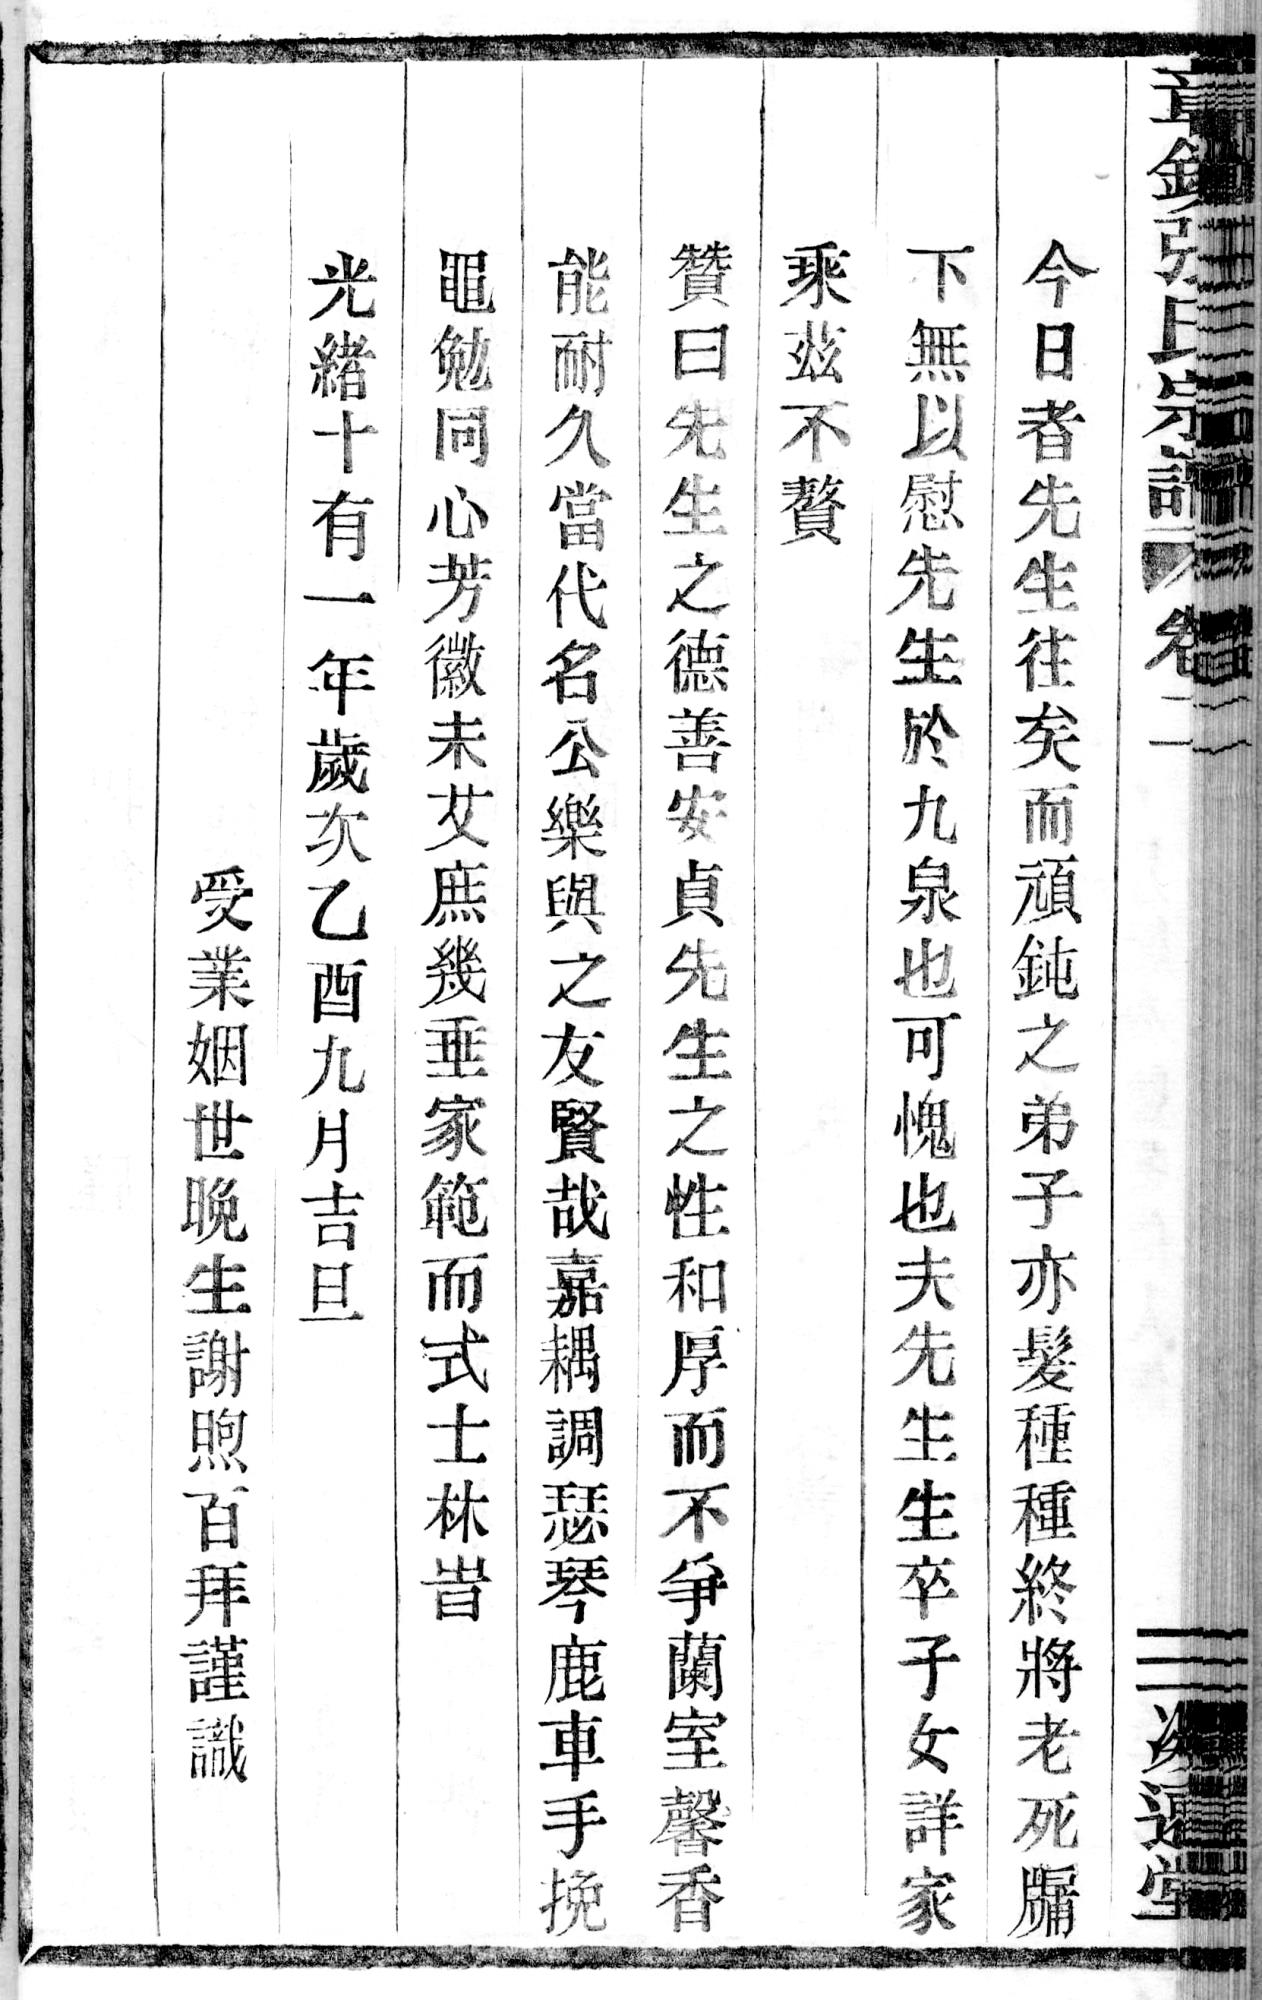 章鎮張氏宗譜 卷二
今日者先生往矣而頑鈍之弟子亦髮種種終將老死牖
下無以慰先生於九泉也可愧也夫先生生卒子女詳家
乘茲不贅
贊曰先生之德善安貞先生之性和厚而不爭蘭室馨香
能耐久當代名公樂與之友賢哉嘉耦調瑟琴鹿車手挽
黽勉同心芳徽未艾庶幾垂家範而式士林旹
光緒十有一年歲次乙酉九月吉旦
受業姻世晚生謝煦百拜謹識